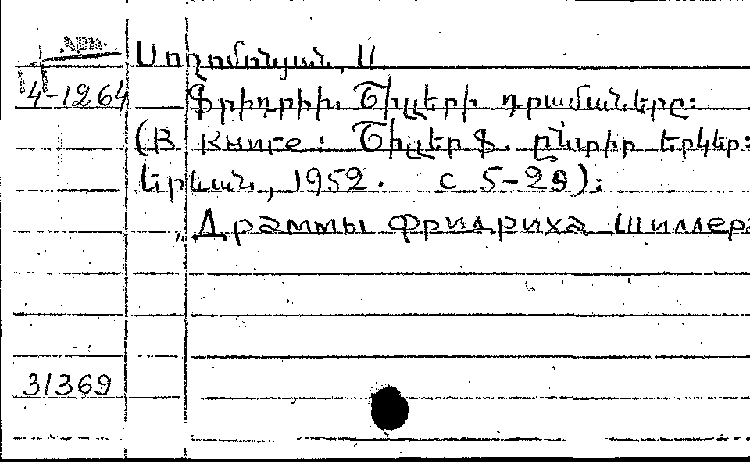 Սողոմոնյան, Ս
4-1264 Ֆրիդրիխ Շիլլերի դրամաները։
(В книге: Շիլլեր Ֆ. ընտիր երկեր։
Երևան, 1952. с 5-28)։
„Драммы Фридриха Шиллера
31369